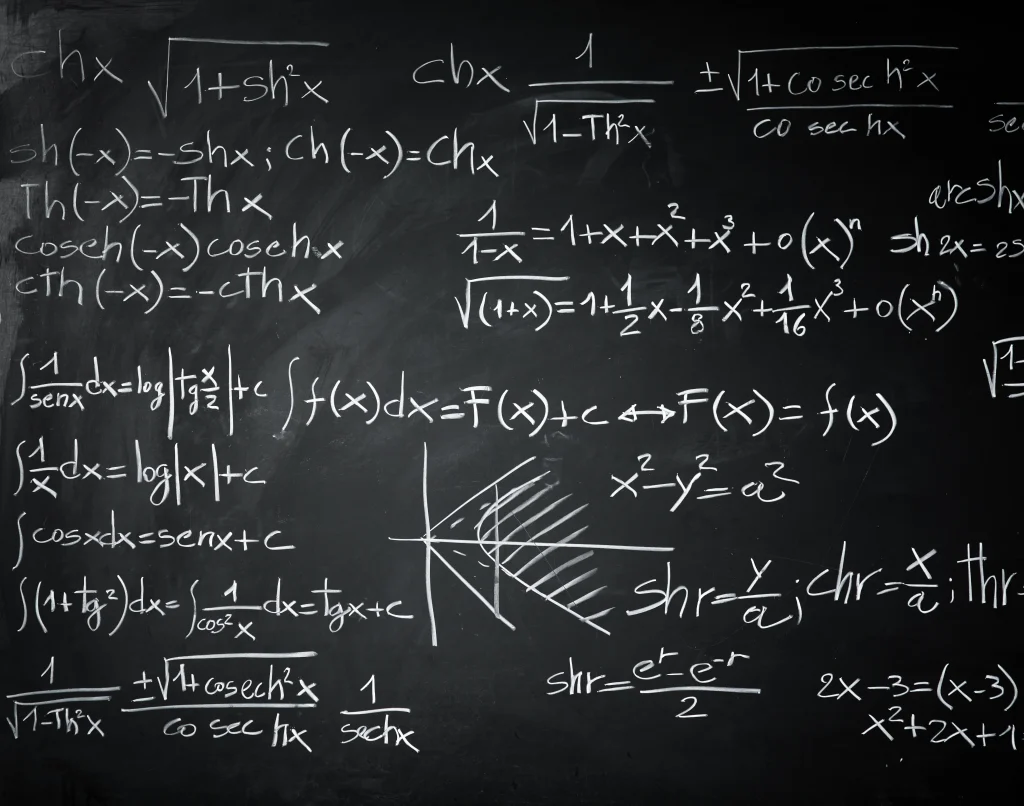 chx √(1+sh²x) chx 1/√(1-Th²x) ±√(1+cosech²x)/cosechx
sh(-x)=-shx; ch(-x)=chx
Th(-x)=-Thx
arcshx
cosech(-x)cosechx
1/(1-x)=1+x+x²+x³+o(x)ⁿ sh2x=2s
cth(-x)=-cthx
√(1+x)=1+1/2x-1/8x²+1/16x³+o(xⁿ)
∫1/senx dx=log|tg x/2|+c ∫f(x)dx=F(x)+c↔F(x)=f(x)
∫1/x dx=log|x|+c
x²-y²=a²
∫cosxdx=senx+c
∫(1+tg²)dx=∫1/cos²x dx=tgx+c
shr=y/a; chr=x/a; thr=
1/√(1-Th²x) ±√(1+cosech²x)/cosechx 1/sechx
shr=(eʳ-e⁻ʳ)/2
2x-3=(x-3)
x²+2x+1